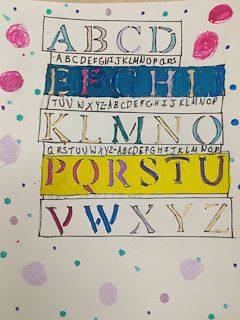 A B C D
A B C D E F G H I J K L M N O P Q R S
E F G H I J
T U V W X Y Z A B C D E F G H I J K L M N O P
K L M N O
Q R S T U V W X Y Z A B C D E F G H I J K L M N O P
P Q R S T U
V W X Y Z